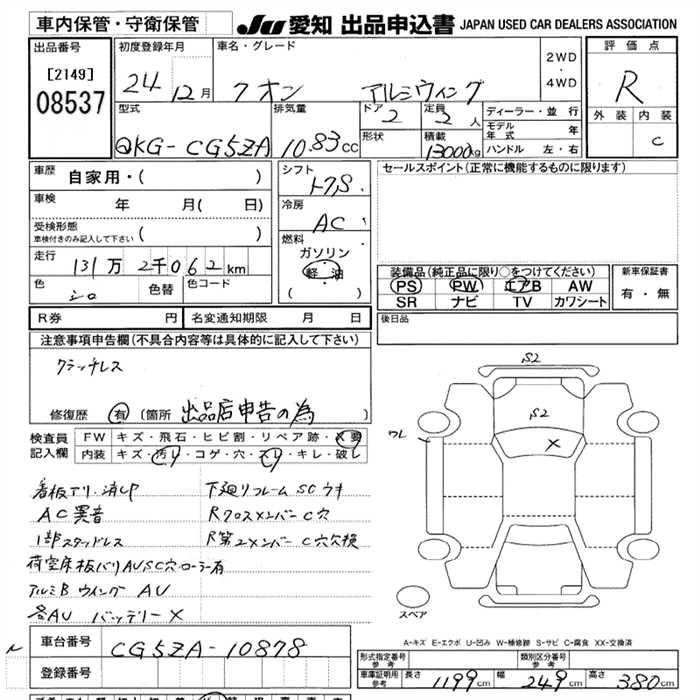 車内保管・守衛保管
JU 愛知 出品申込書 JAPAN USED CAR DEALERS ASSOCIATION
出品番号 [2149] 08537
初度登録年月 24 12月
車名・グレード クオン アルミウィング
2WD ・ 4WD
評価点 R
外装 内装 C
型式 QKG- CG5ZA
排気量 10.83 CC
ドア 2 形状
定員 2人 積載 13000kg
ディーラー・並行
モデル年式 年
ハンドル 左・右
車歴 自家用・( )
車検 年 月( 日)
受検形態 車検付きのみ記入して下さい ( )
走行 131万 2千062km
色 シロ 色替 色コード
シフト トクS
冷房 AC
燃料 ガソリン 軽油 ( )
セールスポイント(正常に機能するものに限ります)
装備品(純正品に限り○をつけてください)
PS PW エアB AW
SR ナビ TV カワシート
新車保証書 有・無
R券 円 名変通知期限 月 日
後日品
注意事項申告欄(不具合内容等は具体的に記入して下さい)
クラッチレス
修復歴 有 (箇所 出品店申告の為
検査員記入欄
FW キズ・飛石・ヒビ割・リペア跡・X要
内装 キズ・汚れ・コゲ・穴・スレ・キレ・破レ
看板アリ・消し
下廻りフレームSCウキ
AC異音
RクロスメンバーC穴
1部スタッドレス
R第2メンバーC穴欠損
荷室床板バリAUSC穴ローラー有
アルミB ウイング AU
各AU バッテリーX
S2
S2
X
ワレ
スペア
A-キズ E-エクボ U-凹み W-補修跡 S-サビ C-腐食 XX-交換済
車台番号 CG5ZA-10878
登録番号
形式指定番号 参考
類別区分番号 参考
車庫証明用 参考 長さ 1199cm 幅 249cm 高さ 380cm